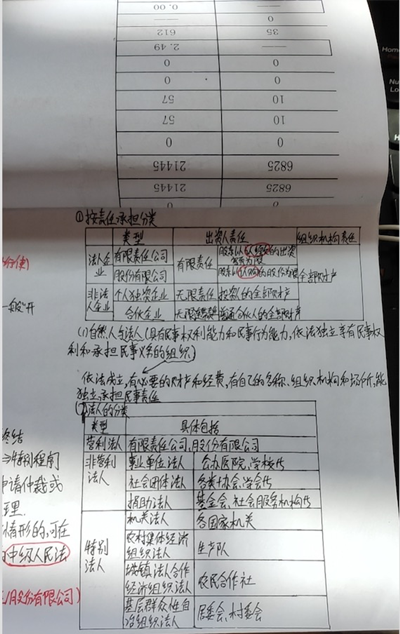 0.00
612
35
2.49
0
0
57
10
57
10
0
0
21445
6825
21445
6825
0
0
①按责任承担分类
类型 出资人责任 组织机构责任
法人企业 有限责任公司 有限责任
股份有限公司 全部财产
非法人企业 个人独资企业 无限责任 投资人的全部财产
合伙企业 普通合伙人的全部财产
(1)自然人与法人(具有民事权利能力和民事行为能力,依法独立享有民事权
利和承担民事义务的组织)
依法成立,有必要的财产和经费,有自己的名称、组织机构和场所,能
独立承担民事责任
法人的分类
类型 具体包括
营利法人 有限责任公司,股份有限公司
非营利法人 事业单位法人 公办医院,学校等
社会团体法人 各类协会,学会等
捐助法人 基金会、社会服务机构等
特别法人 机关法人 各国家机关
农村集体经济组织法人 生产队
城镇、法人合作经济组织法人 农民合作社
基层群众性自治组织法人 居委会、村委会
终结
特别程序
申请仲裁或
情形的,可在
中级人民法
股份有限公司)